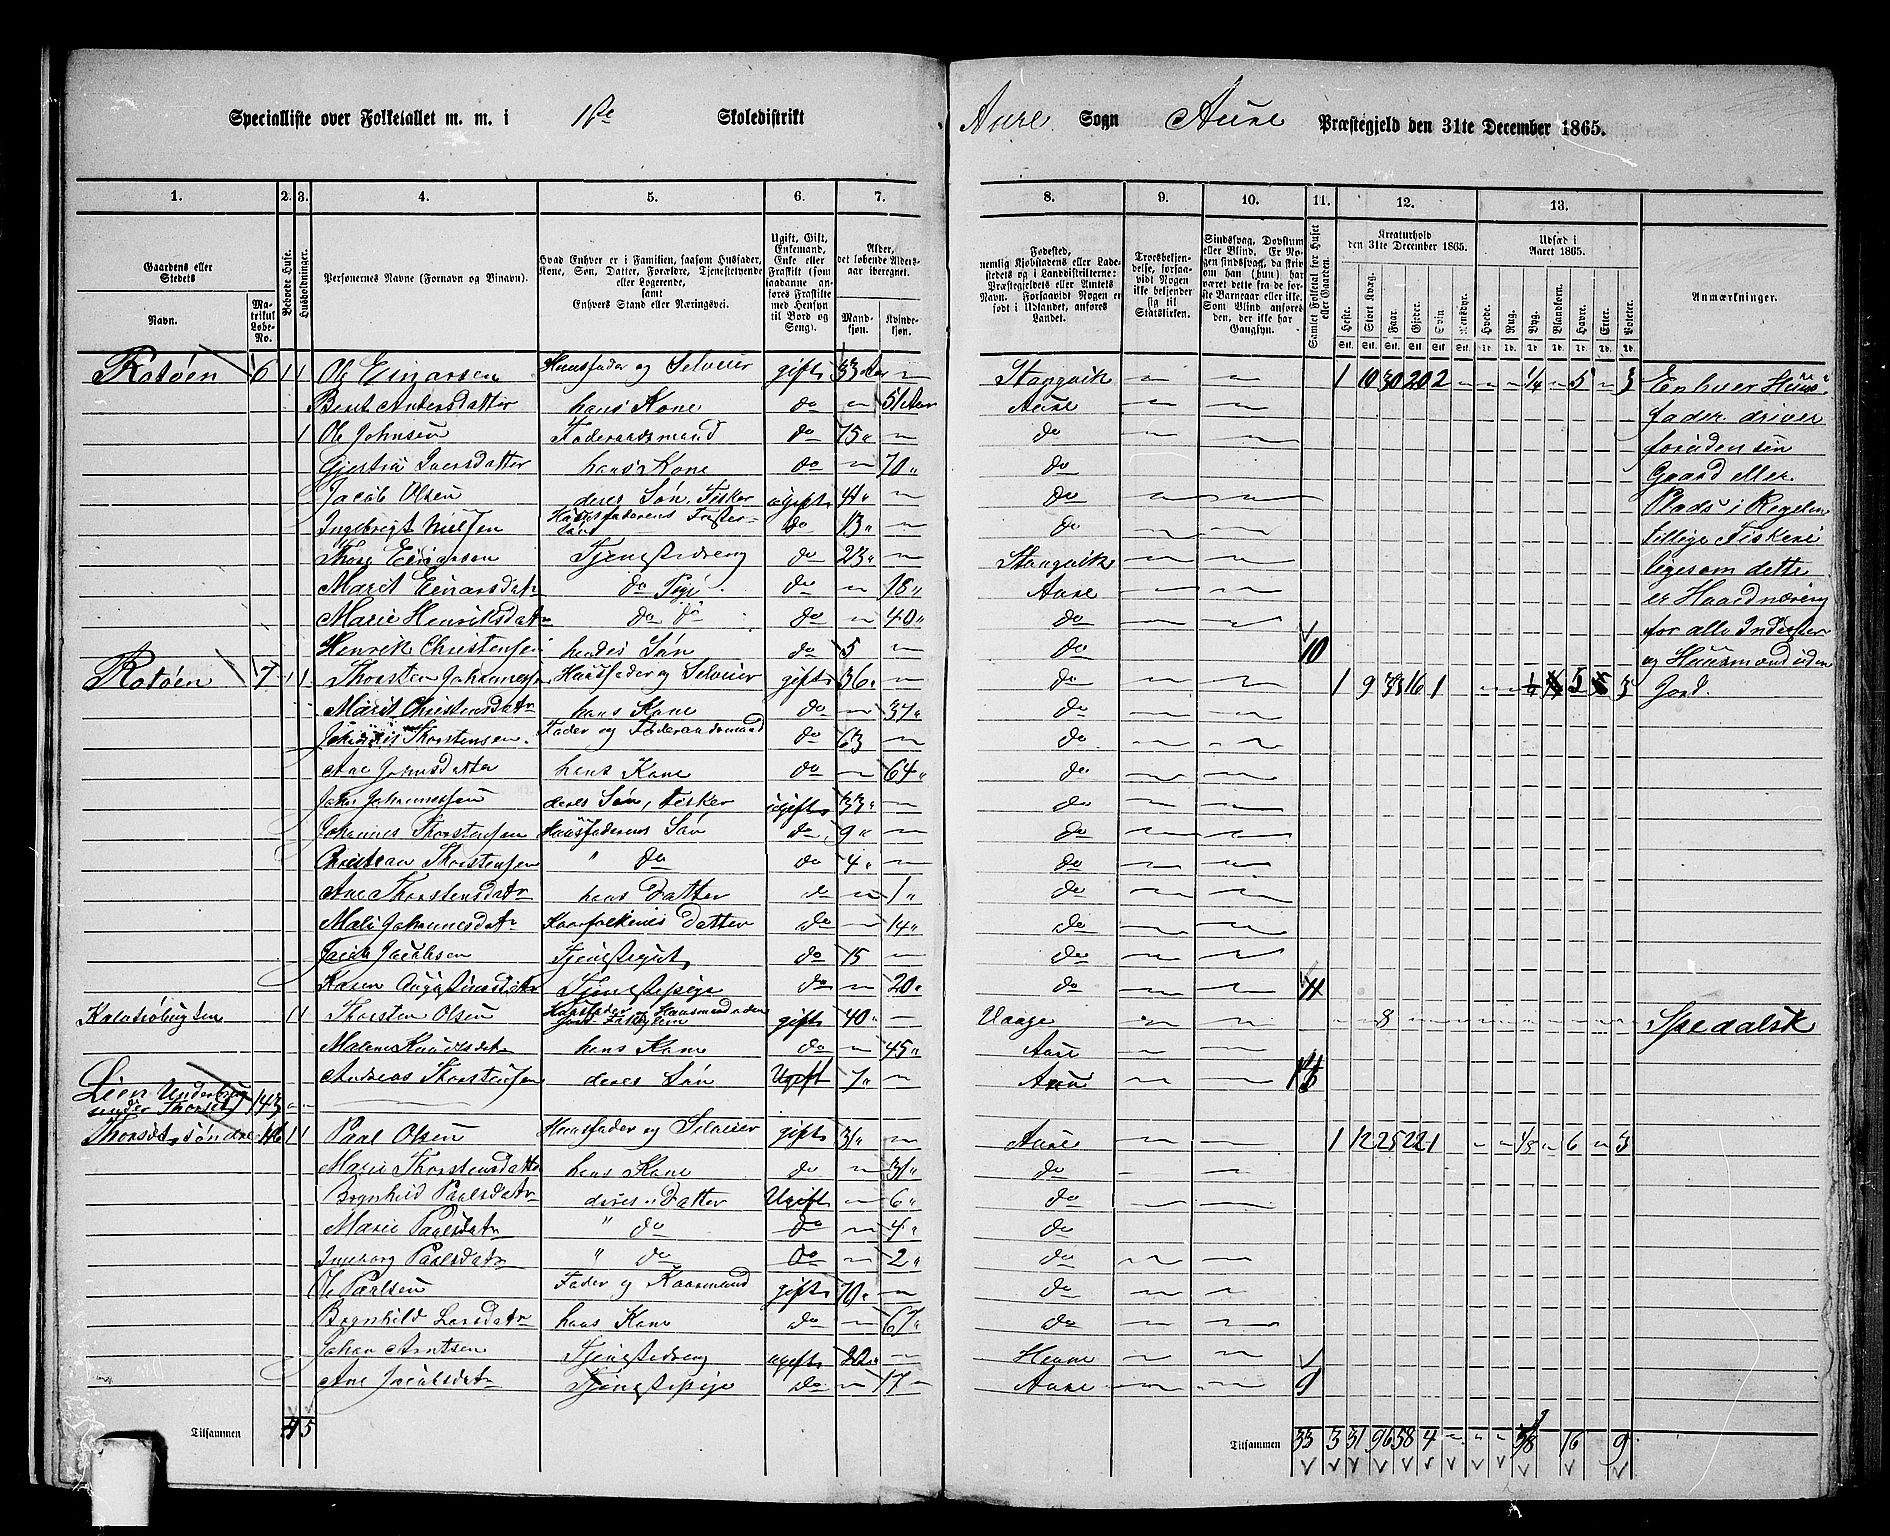 Specialliste over Folketallet m. m. i 1ste Skoledistrikt Aure Sogn Aure Præstegjeld den 31te December 1865.
1. 2. 3. 4. 5. 6. 7. 8. 9. 10. 11. 12. 13.
Gaardens eller Stedets
Navn. Matrikul Løbe-No.
Beboede Huse.
Husholdninger.
Personernes Navne (Fornavn og Binavn).
Hvad Enhver er i Familien, saasom Husfader, Kone, Søn, Datter, Forældre, Tjenestetyende eller Logerende, samt Enhvers Stand eller Næringsvei.
Ugift, Gift, Enkemand, Enke eller Fraskilt (som saadanne anføres Fraskilte med Hensyn til Bord og Seng).
Alder, det løbende Aldersaar iberegnet.
Mandkjøn. Kvindekjøn.
Fødested, nemlig Kjøbstadens eller Ladestedets og i Landdistrikterne: Præstegjeldets eller Amtets Navn. Forsaavidt Nogen er født i Udlandet, anføres Landet.
Troesbekjendelse, forsaavidt Nogen ikke bekjender sig til Statskirken.
Sindssvag, Døvstum eller Blind. Er Nogen sindssvag, da skrives om han (hun) har været det fra de første Barneaar eller ikke. Som Blind anføres den, der ikke har Gangsyn.
Samlet Folketal for Huset eller Gaarden.
Kreaturhold den 31te December 1865.
Heste. Stort Kvæg. Faar. Gjeder. Svin. Rensdyr.
Udsæd i Aaret 1865.
Hvede. Rug. Byg. Blandkorn. Havre. Erter. Poteter.
Anmærkninger.
Rotøen 6 1 1 Ole Einarsen Huusfader og Selveier gift 33 Aar Stangvik 1 10 30 20 2 1/4 5 3 Enhver Huus-
Beret Andersdatter hans Kone do 51 Aar Aure fader driver
1 Ole Johnsen Føderaadsmand do 75 do foruden sin
Gjertru Iversdatter hans Kone do 70 do Gaard eller
Jacob Olsen deres Søn, Fisker ugift 41 do Plads i Regelen
Ingebrigt Nielsen Huusfaderens Søstersøn do 13 do tillige Fiskeri
Thore Einarsen Tjenestedreng do 23 Stangvik ligesom dette
Marit Einarsdatr do Pige do 18 Aure er Haandnæring
Marie Henriksdatr do do do 40 do for alle Inderster
Henrik Christensen hendes Søn do 5 do 10 og Huusmænd uden
Rotøen 7 1 1 Thorsten Johannessen Huusfader og Selveier gift 36 do 1 9 33 16 1 1/4 5 3 Jord.
Marit Christensdatr hans Kone do 37 do
Johannes Thorstensen Fader og Føderaadsmand do 63 do
Ane Johnsdatter hans Kone do 64 do
John Johannessen deres Søn, Fisker ugift 33 do
Johannes Thorstensen Huusfaderens Søn do 9 do
Christian Thorstensen " do do 4 do
Ane Thorstensdatr hans Datter do 1 do
Mali Johannesdatr Kaarfolkenes Datter do 14 do
Jacob Jacobsen Tjenestegut do 15 do
Karen Augustinusdatr Tjenestepige do 20 do 11
1 1 Thorsten Olsen gift 40 Vaage 8 Spedalsk
Malene Knudsdatr hans Kone do 45 Aure
Andreas Thorstensen deres Søn Ugift 7 Aure 3
Lien Underbrug under Thorset 143
Thorset, søndre 146 1 1 Paal Olsen Huusfader og Selveier gift 31 Aure 1 12 25 22 1 1/8 6 3
Marie Thorstensdatter hans Kone do 31 do
Bognhild Paalsdatr deres Datter Ugift 6 do
Marie Paalsdatr " do do 4 do
Ingeborg Paalsdatr " do do 2 do
Ole Paalsen Fader og Kaarmand gift 70 do
Bognhild Larsdatr hans Kone do 67 do
Johan Arntsen Tjenestedreng ugift 22 Hevne
Ane Jacobsdatr Tjenestepige do 17 Aure 9
Tilsammen 4 5
Tilsammen 33 3 31 96 58 4 16 9